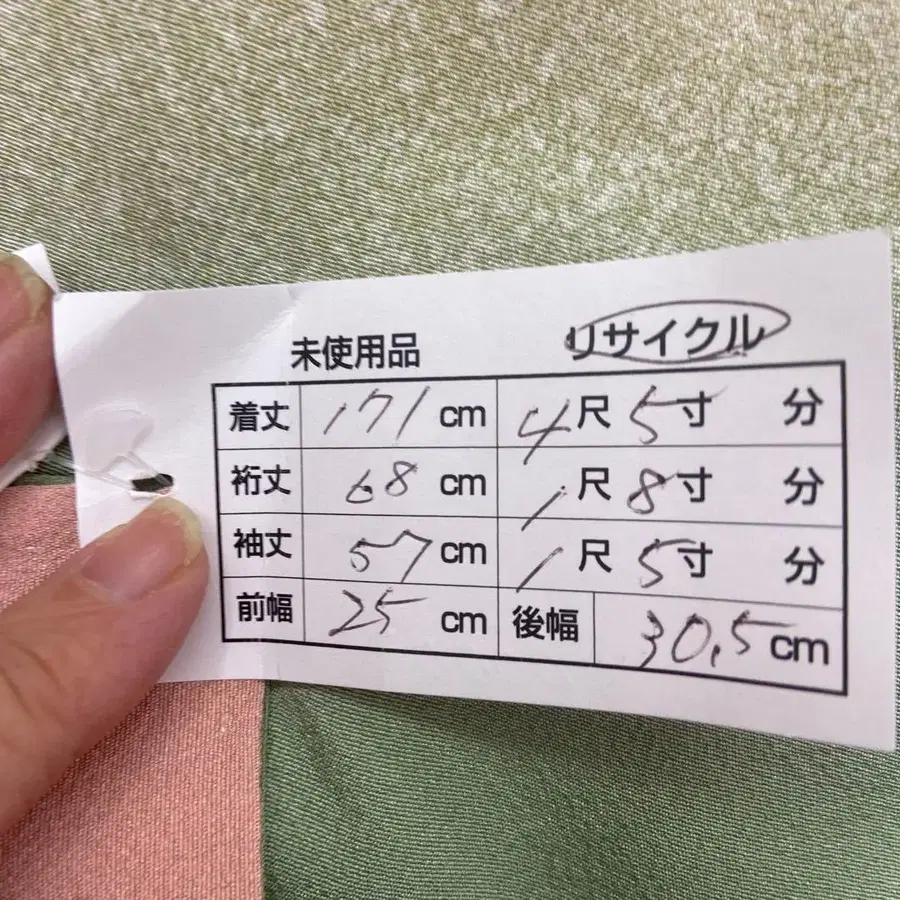 未使用品 リサイクル
着丈 171 cm 4尺5寸 分
裄丈 68 cm 1尺8寸 分
袖丈 57 cm 1尺5寸 分
前幅 25 cm 後幅 30.5 cm